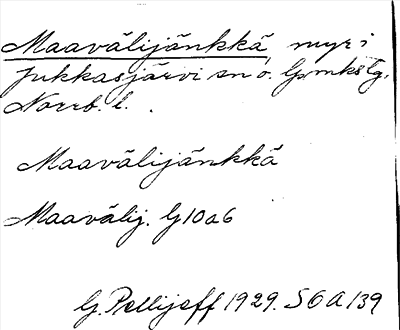 Maavälijänkkä, myr i
Jukkasjärvi sn o. lpmkstg,
Norrb. l.
Maavälijänkkä
Maavälij. G10a6
G. Pellijeff 1929. S6A139